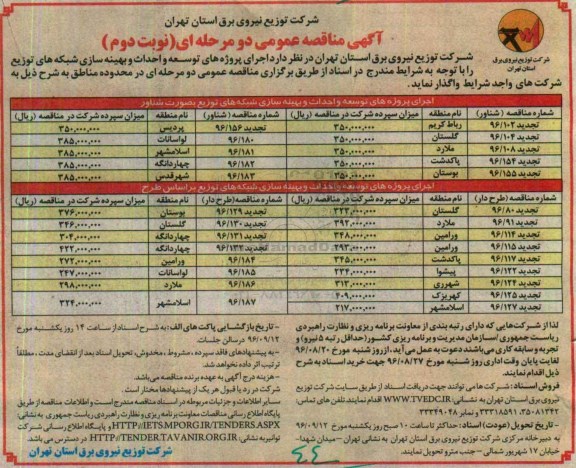 شرکت توزیع نیروی برق استان تهران
آگهی مناقصه عمومی دو مرحله ای (نوبت دوم)
شرکت توزیع نیروی برق
استان تهران
شرکت توزیع نیروی برق استان تهران در نظر دارد اجرای پروژه های توسعه و احداث و بهینه سازی شبکه های توزیع
را با توجه به شرایط مندرج در اسناد از طریق برگزاری مناقصه عمومی دو مرحله ای در محدوده مناطق به شرح ذیل به
شرکت های واجد شرایط واگذار نماید.
اجرای پروژه های توسعه و احداث و بهینه سازی شبکه های توزیع بصورت شناور
شماره مناقصه (شناور) نام منطقه میزان سپرده شرکت در مناقصه (ریال) شماره مناقصه (شناور) نام منطقه میزان سپرده شرکت در مناقصه (ریال)
تجدید ۹۶/۱۰۲ رباط کریم ۳۵۰,۰۰۰,۰۰۰ تجدید ۹۶/۱۵۶ پردیس ۳۵۰,۰۰۰,۰۰۰
تجدید ۹۶/۱۰۴ گلستان ۳۵۰,۰۰۰,۰۰۰ ۹۶/۱۸۰ لواسانات ۳۸۵,۰۰۰,۰۰۰
تجدید ۹۶/۱۰۸ ملارد ۳۵۰,۰۰۰,۰۰۰ ۹۶/۱۸۱ اسلامشهر ۳۸۵,۰۰۰,۰۰۰
تجدید ۹۶/۱۵۴ پاکدشت ۳۵۰,۰۰۰,۰۰۰ ۹۶/۱۸۲ چهاردانگه ۳۸۵,۰۰۰,۰۰۰
تجدید ۹۶/۱۵۵ بوستان ۳۵۰,۰۰۰,۰۰۰ ۹۶/۱۸۳ شهرقدس ۳۸۵,۰۰۰,۰۰۰
اجرای پروژه های توسعه و احداث و بهینه سازی شبکه های توزیع براساس طرح
شماره مناقصه (طرح دار) نام منطقه میزان سپرده شرکت در مناقصه (ریال) شماره مناقصه (طرح دار) نام منطقه میزان سپرده شرکت در مناقصه (ریال)
تجدید ۹۶/۸۰ گلستان ۲۲۳,۰۰۰,۰۰۰ تجدید ۹۶/۱۲۹ بوستان ۳۷۶,۰۰۰,۰۰۰
تجدید ۹۶/۹۱ ملارد ۳۹۲,۰۰۰,۰۰۰ تجدید ۹۶/۱۳۰ گلستان ۳۴۶,۰۰۰,۰۰۰
تجدید ۹۶/۱۱۴ ورامین ۳۴۸,۰۰۰,۰۰۰ تجدید ۹۶/۱۳۱ چهاردانگه ۳۰۴,۰۰۰,۰۰۰
تجدید ۹۶/۱۱۵ ورامین ۲۹۳,۰۰۰,۰۰۰ تجدید ۹۶/۱۳۲ چهاردانگه ۴۲۲,۰۰۰,۰۰۰
تجدید ۹۶/۱۱۷ پاکدشت ۳۴۵,۰۰۰,۰۰۰ ۹۶/۱۸۴ ورامین ۲۷۲,۰۰۰,۰۰۰
تجدید ۹۶/۱۲۲ پیشوا ۲۳۴,۰۰۰,۰۰۰ ۹۶/۱۸۵ لواسانات ۲۴۷,۰۰۰,۰۰۰
تجدید ۹۶/۱۲۴ شهرری ۳۱۳,۰۰۰,۰۰۰ ۹۶/۱۸۶ ملارد ۲۹۸,۰۰۰,۰۰۰
تجدید ۹۶/۱۲۵ کهریزک ۲۰۹,۰۰۰,۰۰۰ ۹۶/۱۸۷ اسلامشهر ۳۲۴,۰۰۰,۰۰۰
تجدید ۹۶/۱۲۷ اسلامشهر ۲۱۷,۰۰۰,۰۰۰
لذا از شرکت هایی که دارای رتبه بندی از معاونت برنامه ریزی و نظارت راهبردی
ریاست جمهوری /سازمان مدیریت و برنامه ریزی کشور (حداقل رتبه ۵ نیرو) و
تجربه و سابقه کاری می باشند دعوت به عمل می آید. از روز شنبه مورخ ۹۶/۰۸/۲۰
لغایت پایان وقت اداری روز شنبه مورخ ۹۶/۰۸/۲۷ جهت خرید اسناد به شرح
ذیل اقدام نمایند.
فروش اسناد: شرکت ها می توانند جهت دریافت اسناد از طریق سایت شرکت توزیع
نیروی برق استان تهران به نشانی WWW.TVEDC.IR اقدام نمایند. تلفن های تماس:
۳۵۰۸۱۳۴۲، ۳۳۳۱۸۵۹۱ و نمابر ۳۳۳۴۹۰۴۸
- تاریخ تحویل (عودت) اسناد: حداکثر تا ساعت ۱۰ صبح روز یکشنبه مورخ ۹۶/۰۹/۱۲
به دبیرخانه مرکزی شرکت توزیع نیروی برق استان تهران به نشانی تهران – میدان شهدا-
خیابان ۱۷ شهریور شمالی – جنب مترو تحویل نمایند.
- تاریخ بازگشایی پاکت های الف: به شرح اسناد از ساعت ۱۴ روز یکشنبه مورخ
۹۶/۰۹/۱۲ در سالن جلسات.
-به پیشنهادهای فاقد سپرده، مشروط، مخدوش، تحویل اسناد بعد از انقضای مدت، مطلقاً
ترتیب اثر داده نخواهد شد.
- هزینه درج آگهی به عهده برنده مناقصه می باشد.
شرکت در رد یا قبول هر یک از پیشنهادها مختار است.
سایر اطلاعات و جزئیات مربوطه در اسناد مناقصه مندرج است و اطلاعات مناقصه از طریق
پایگاه اطلاع رسانی مناقصات معاونت برنامه ریزی و نظارت راهبردی ریاست جمهوری به نشانی:
HTTP://IETS.MPORG.IR/TENDERS.ASPX و پایگاه اطلاع رسانی شرکت
توانیر به نشانی: HTTP://TENDER.TAVANIR.ORG.IR در دسترس می باشد.
شرکت توزیع نیروی برق استان تهران
۴۴